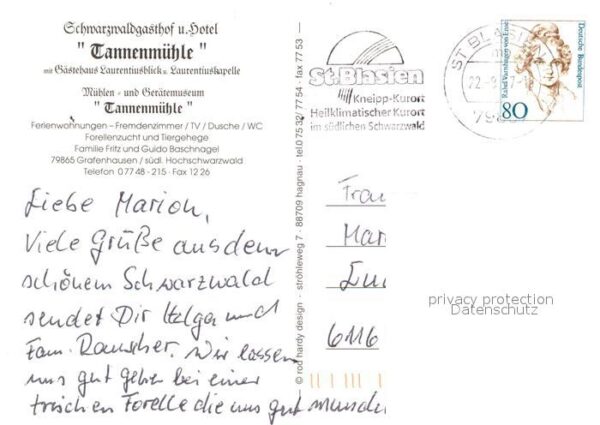 Schwarzwaldgasthof u. Hotel
" Tannenmühle "
mit Gästehaus Laurentiusblick u. Laurentiuskapelle
Mühlen - und Gerätemuseum
" Tannenmühle "
Ferienwohnungen – Fremdenzimmer / TV / Dusche / WC
Forellenzucht und Tiergehege
Familie Fritz und Guido Baschnagel
79865 Grafenhausen / südl. Hochschwarzwald
Telefon 0 77 48 - 215 · Fax 12 26
Liebe Marion,
Viele Grüße aus dem
schönem Schwarzwald
sendet Dir Helga und
Fam. Rauscher. Wir lassen
uns gut gehen bei einer
frischen Forelle die uns gut munde
© rod hardy design - ströhleweg 7 · 88709 hagnau · tel 0 75 32 / 77 54 · fax 77 53 —
St. Blasien
Kneipp-Kurort
Heilklimatischer Kurort
im südlichen Schwarzwald
ST BLASI
22.-9.
Deutsche Bundespost
Rahel Varnhagen von Ense
80
Frau
Mar
6116
privacy protection
Datenschutz